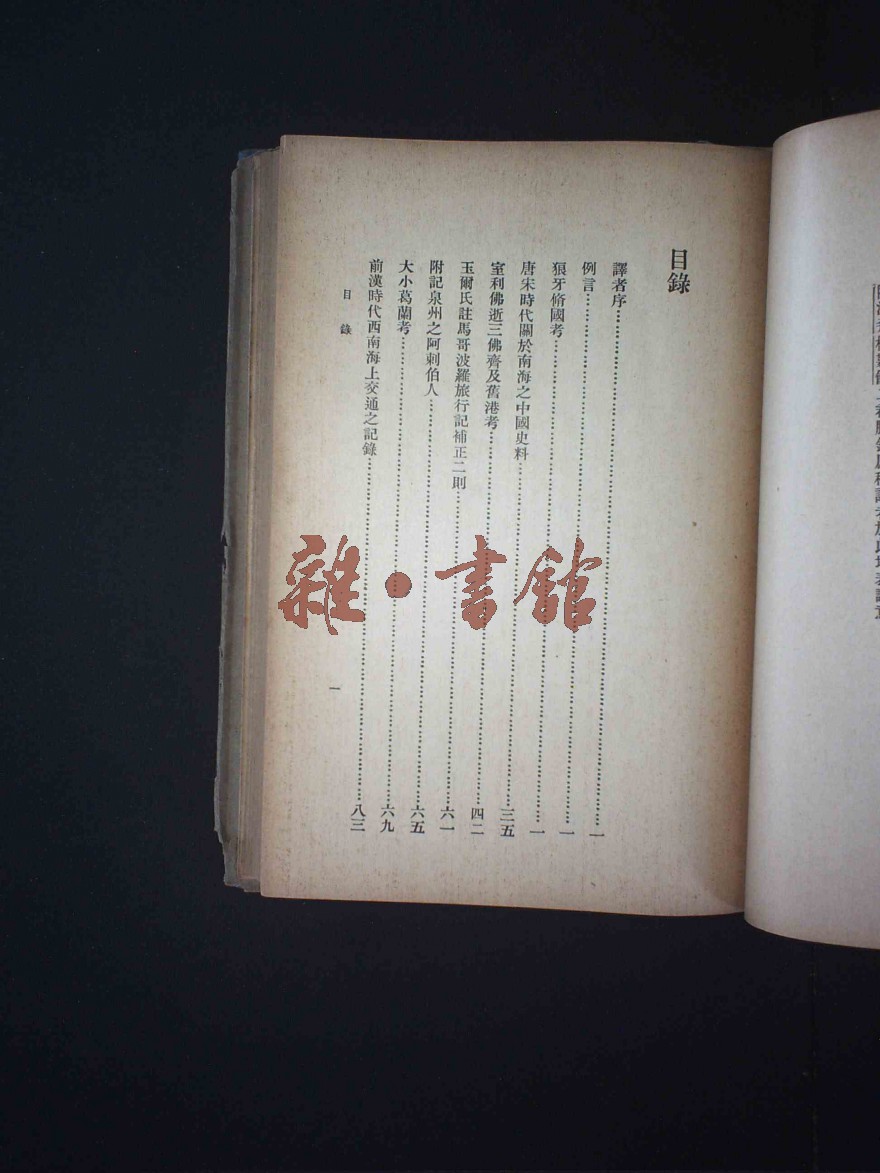 目錄
譯者序……一
例言……一
狼牙脩國考……一
唐宋時代關於南海之中國史料……三五
室利佛逝三佛齊及舊港考……四二
玉爾氏註馬哥波羅旅行記補正二則……六一
附記泉州之阿剌伯人……六五
大小葛蘭考……六九
前漢時代西南海上交通之記錄……八三
目錄
一
雜•書館